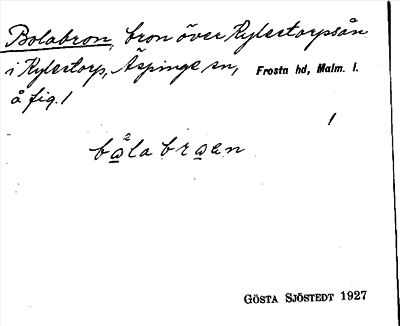 Bolabron, bron över Rylestorpsån
i Rylestorp, Äspinge sn, Frosta hd, Malm. l.
å fig. 1
1
bå²la braen
GÖSTA SJÖSTEDT 1927